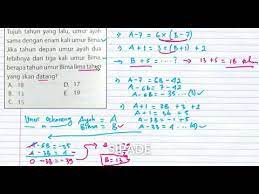 Tujuh tahun yang lalu, umur ayah
sama dengan enam kali umur Bima.
Jika tahun depan umur ayah dua
lebihnya dari tiga kali umur Bima,
berapa tahun umur Bima lima tahun
yang akan datang?
A. 15
B. 16
C. 18
D. 17
E. 19
A-7 = 6×(B-7)
A+1 = 3(B+1) + 2
B+5 = ......? → 13+5 = 18 tahun
A-7 = 6B-42
A-6B = 7-42
A-6B = -35
A+1 = 3B+3+2
A-3B = 3+2-1
A-3B = 4
Umur sekarang Ayah = A
Bima = B
A-6B = -35
A-3B = 4
0-3B = -39
B = 13